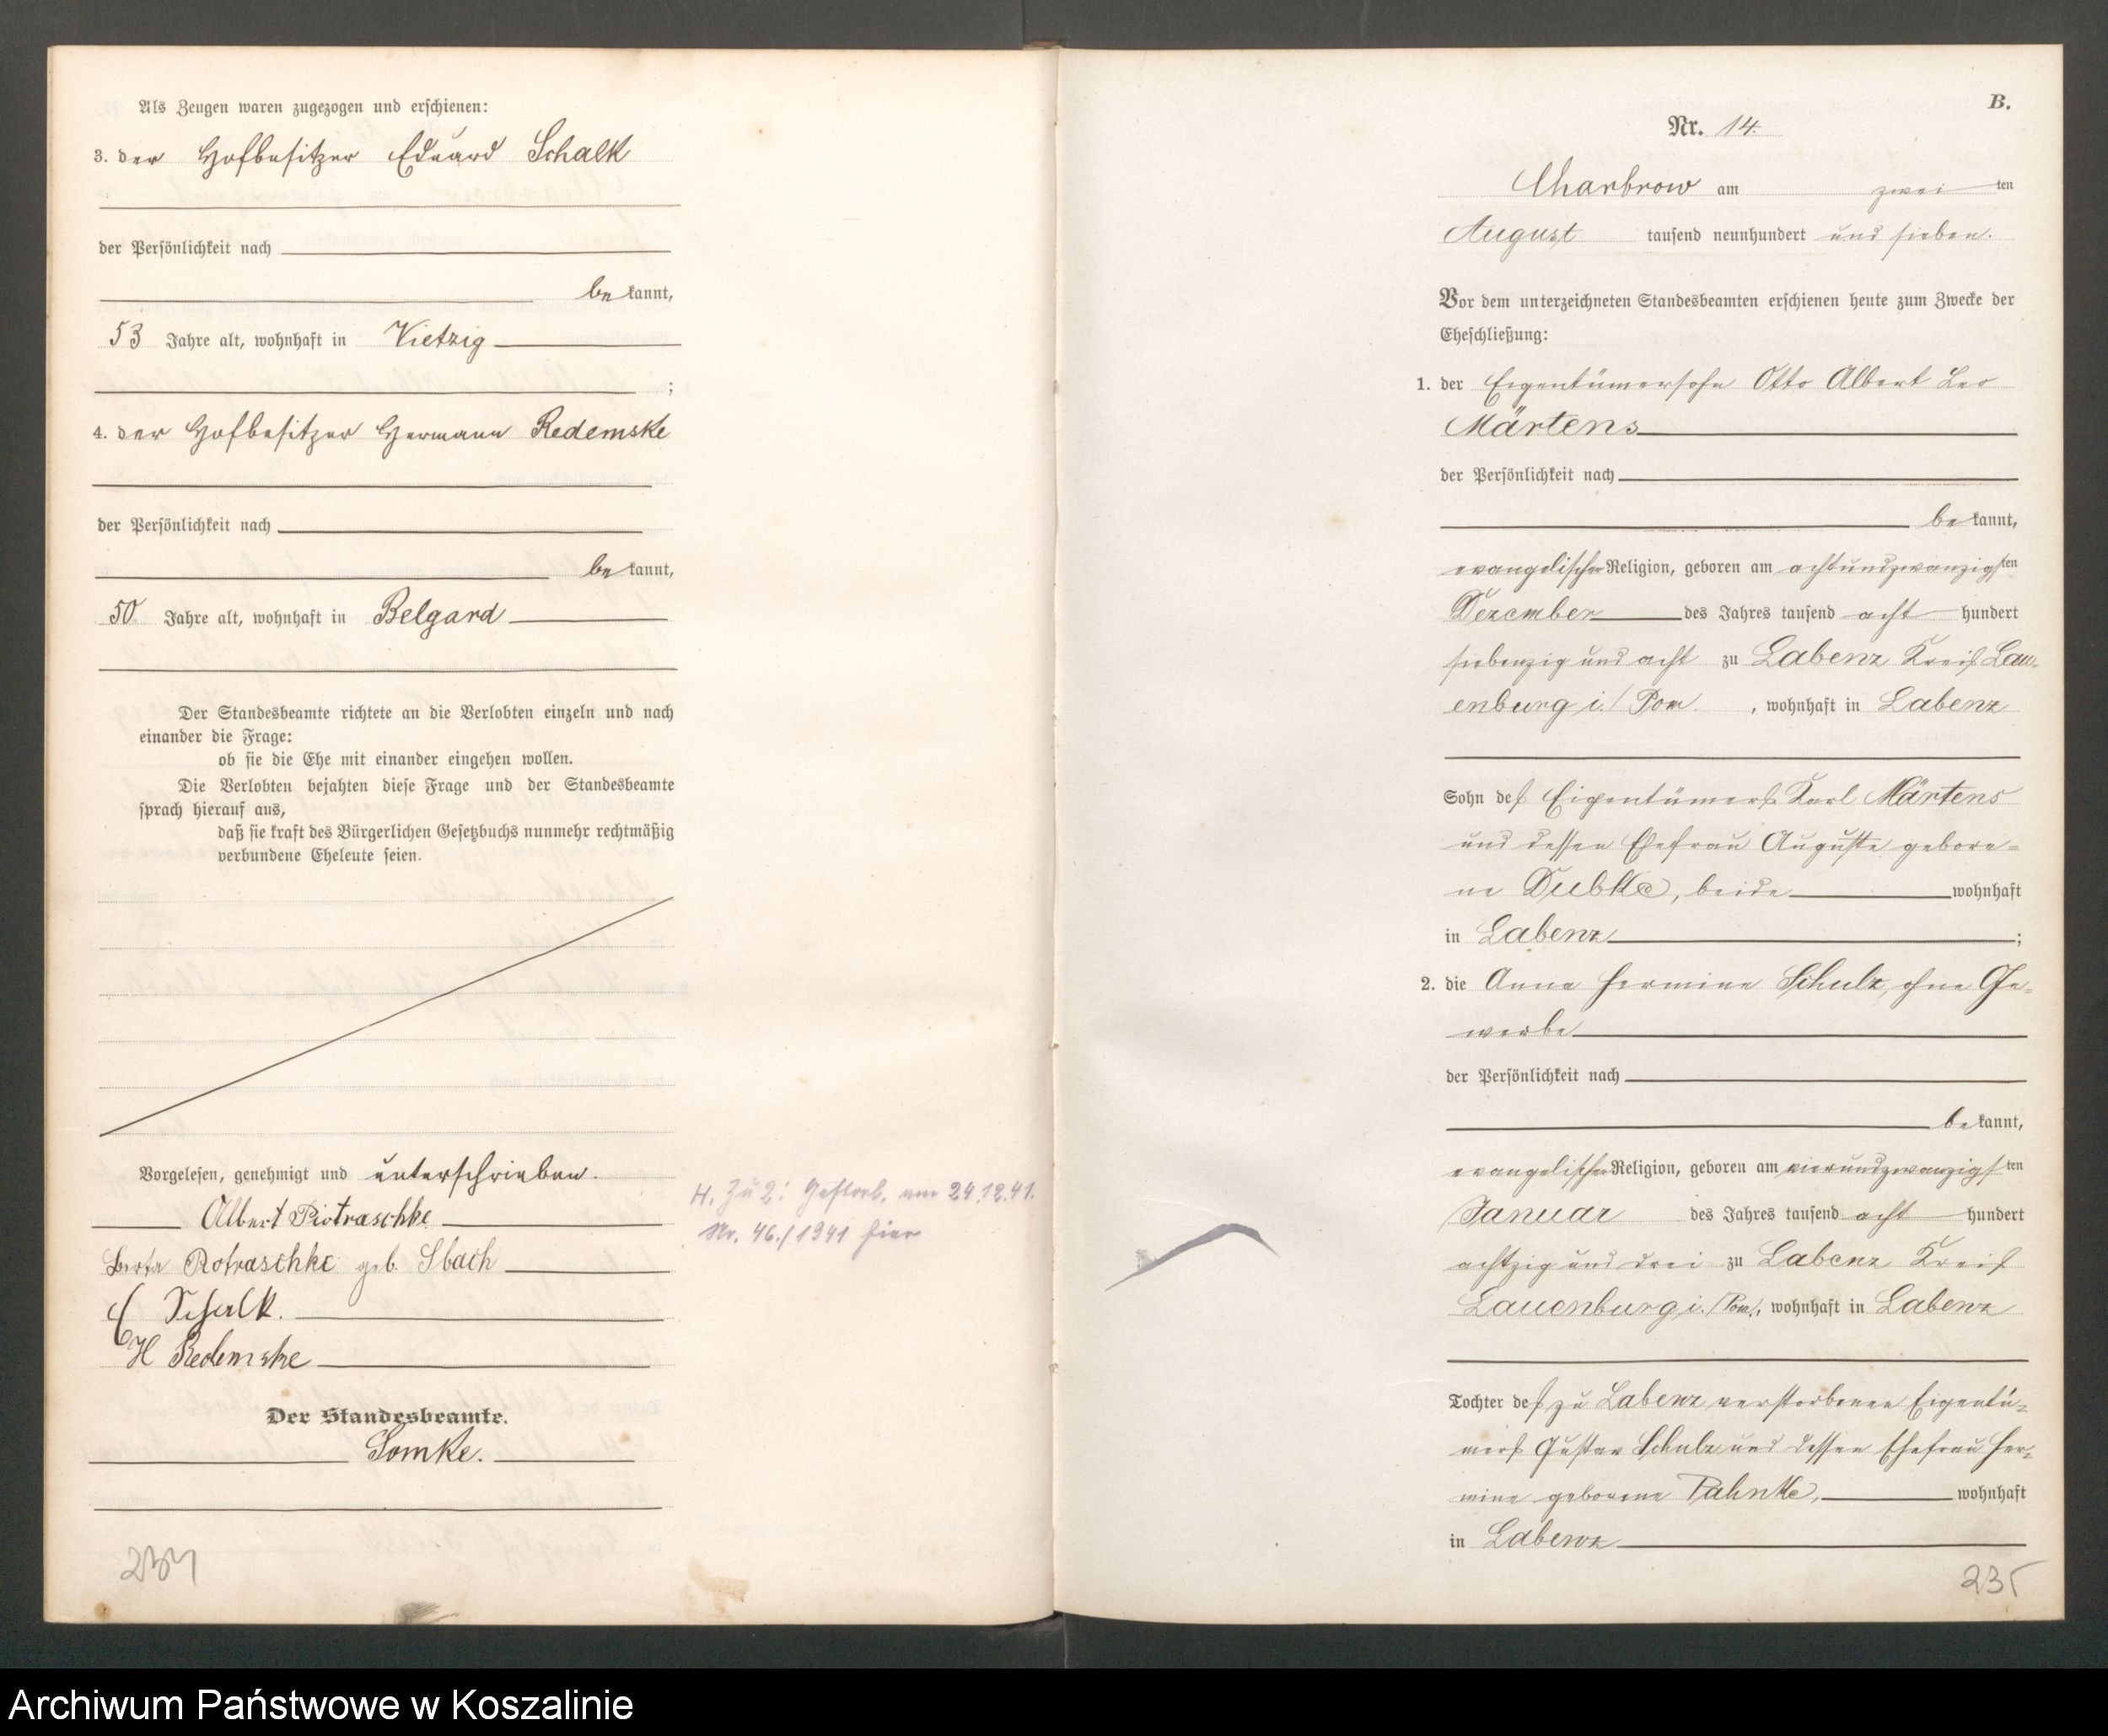 Als Zeugen waren zugezogen und erschienen:
3. der Hofbesitzer Eduard Schalk
der Persönlichkeit nach
be kannt,
53 Jahre alt, wohnhaft in Vietzig
;
4. der Hofbesitzer Hermann Redemske
der Persönlichkeit nach
be kannt,
50 Jahre alt, wohnhaft in Belgard
Der Standesbeamte richtete an die Verlobten einzeln und nach
einander die Frage:
ob sie die Ehe mit einander eingehen wollen.
Die Verlobten bejahten diese Frage und der Standesbeamte
sprach hierauf aus,
daß sie kraft des Bürgerlichen Gesetzbuchs nunmehr rechtmäßig
verbundene Eheleute seien.
Vorgelesen, genehmigt und unterschrieben.
Albert Piotraschke
Berta Piotraschke geb. Sbach
E Schalk.
H Redemske
Der Standesbeamte.
Lomke.
H. Zu 2: Gestorb. am 24.12.41.
Nr. 46./1941 hier
234
B.
Nr. 14.
Charbrow am zwei ten
August tausend neunhundert und sieben.
Vor dem unterzeichneten Standesbeamten erschienen heute zum Zwecke der
Eheschließung:
1. der Eigentümersohn Otto Albert Leo
Märtens
der Persönlichkeit nach
be kannt,
evangelischer Religion, geboren am achtundzwanzigsten
Dezember des Jahres tausend acht hundert
siebenzig und acht zu Labenz Kreis Lau-
enburg i./Pom. , wohnhaft in Labenz
Sohn des Eigentümers Karl Märtens
und dessen Ehefrau Auguste gebore-
ne Dubke, beide wohnhaft
in Labenz ;
2. die Anna Hermine Schulz, ohne Ge-
werbe
der Persönlichkeit nach
be kannt,
evangelischer Religion, geboren am vierundzwanzigsten
Januar des Jahres tausend acht hundert
achtzig und drei zu Labenz Kreis
Lauenburg i./Pom., wohnhaft in Labenz
Tochter des zu Labenz verstorbenen Eigentü-
mers Gustav Schulz und dessen Ehefrau Her-
mine geborene Pahnke, wohnhaft
in Labenz
235
Archiwum Państwowe w Koszalinie